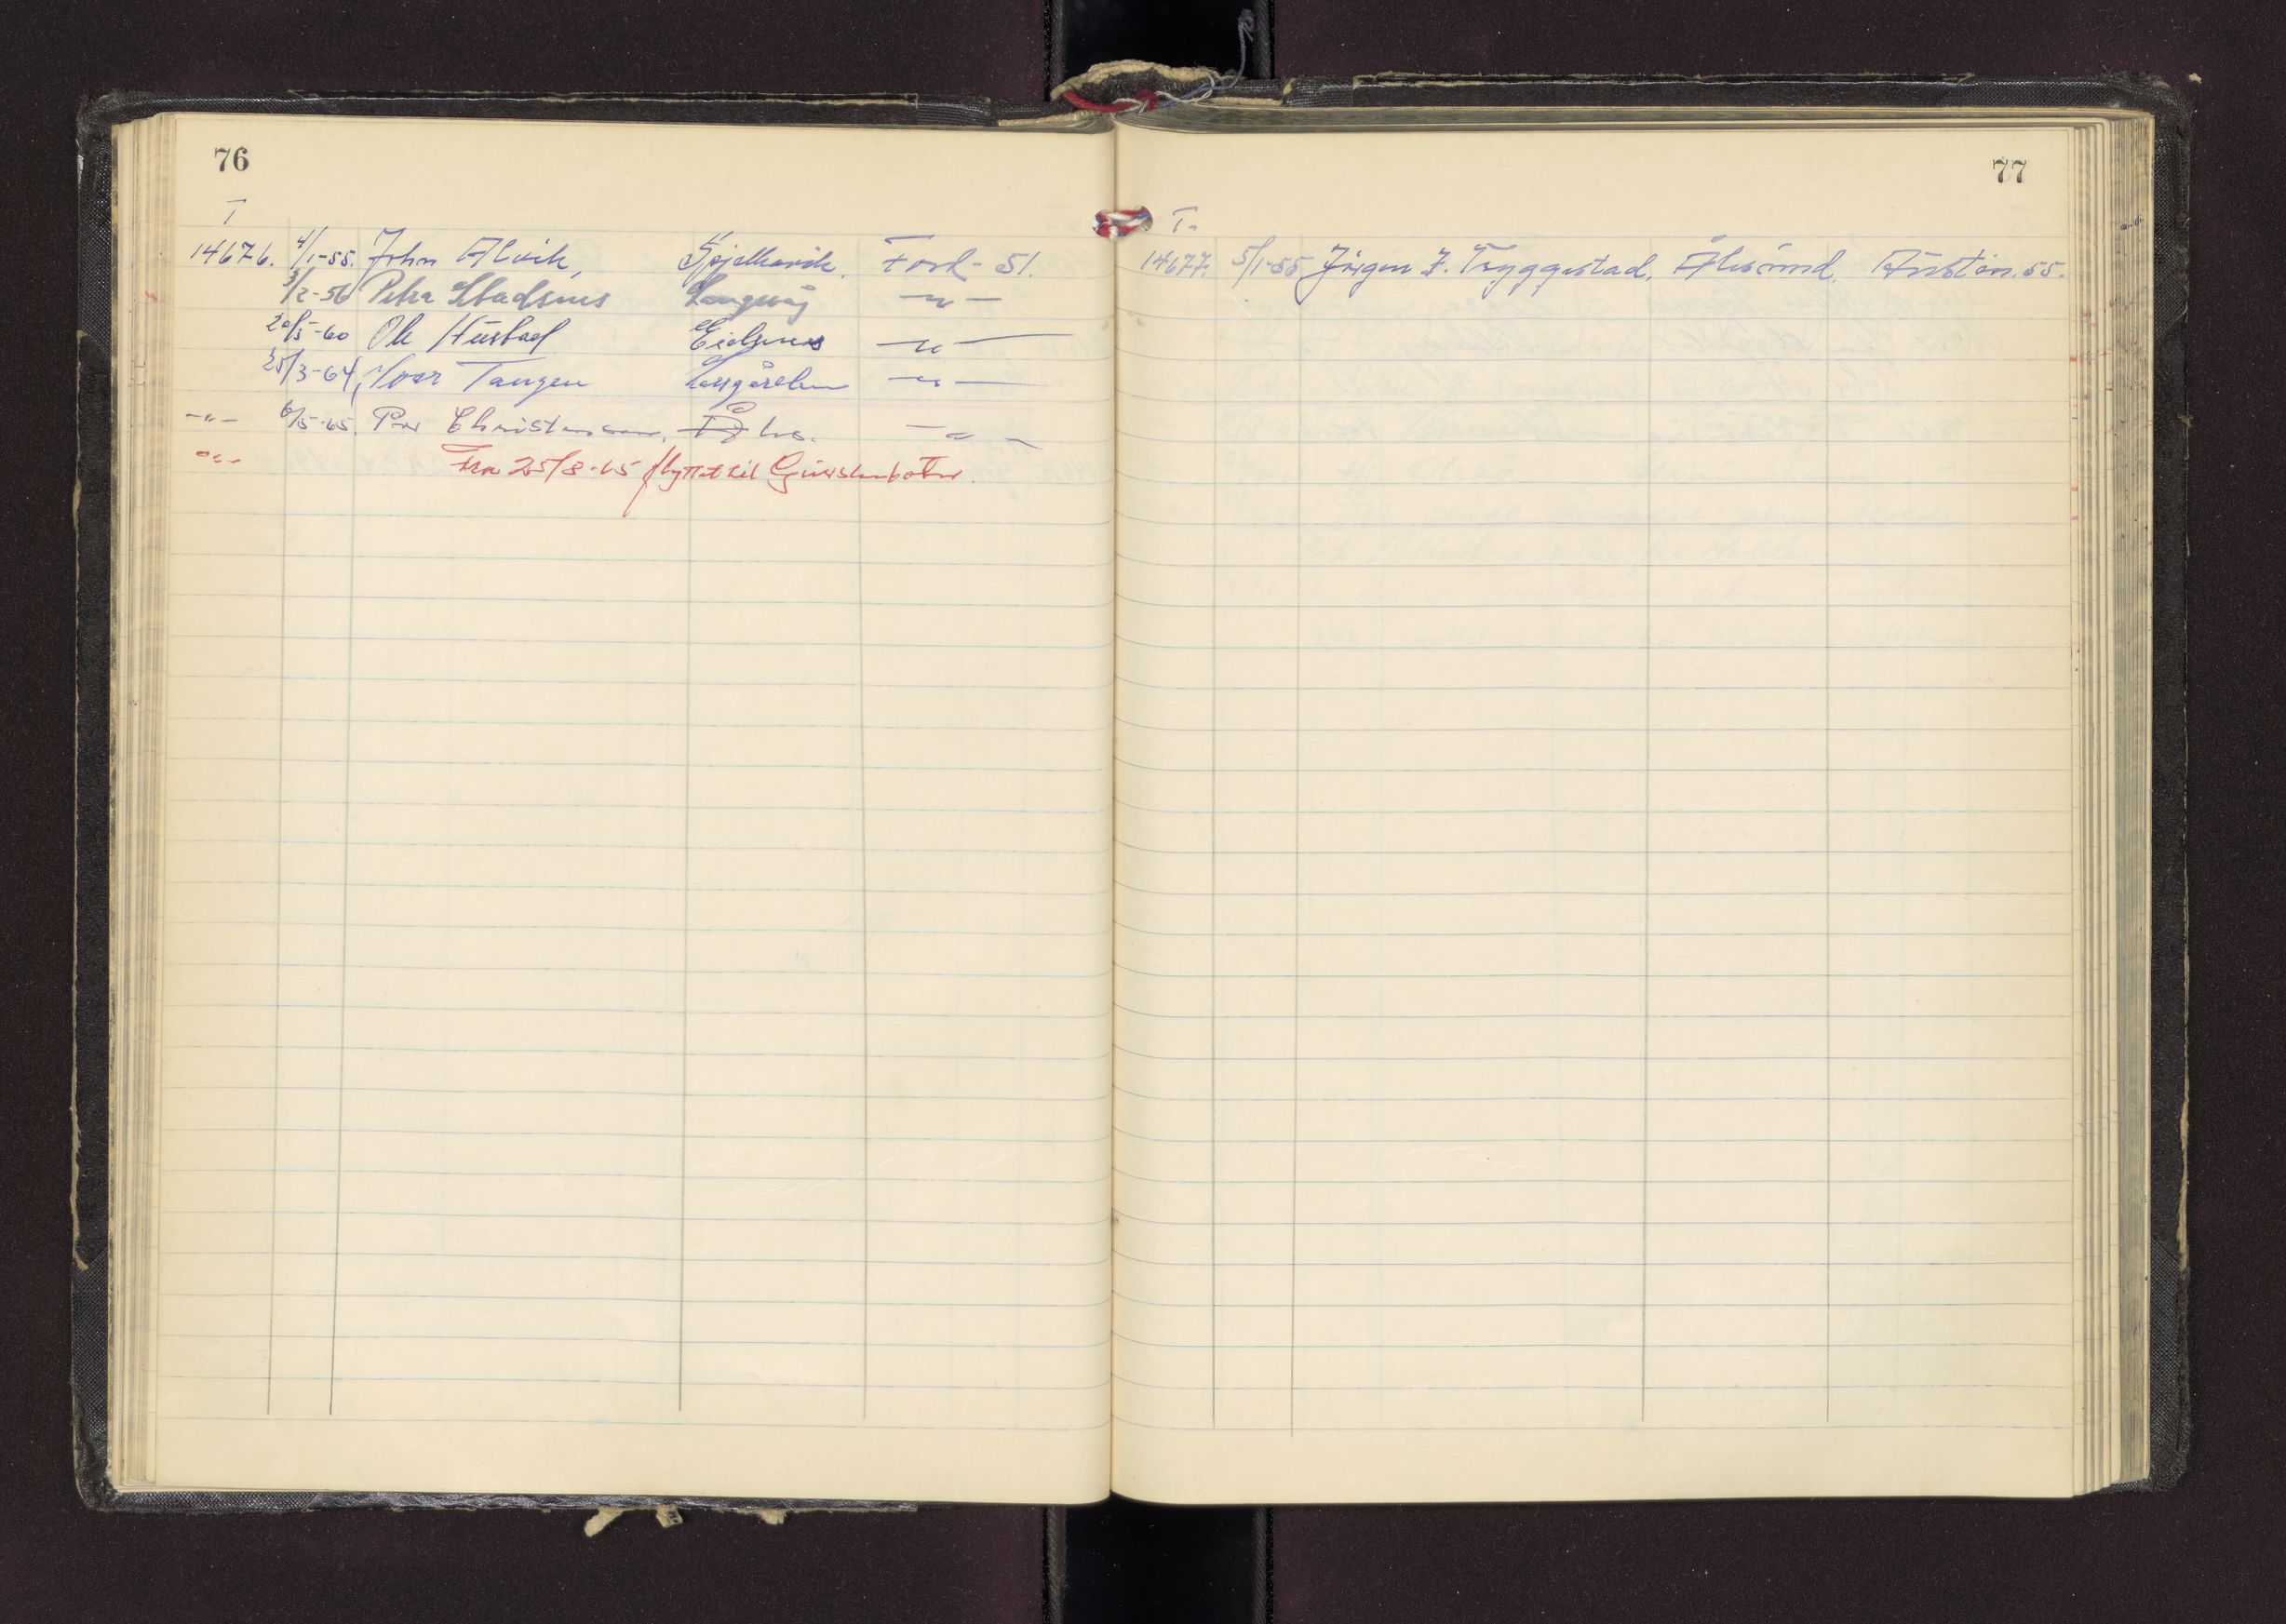 76
T
14676. 4/1-55. John Alvik, Spjelkavik. Ford- 51.
3/2-56 Petra Stadsnes Langevåg —"—
20/5-60 Ole Hustad Eidsnes —"—
25/3-64 Ivar Tangen —"—
—"— 6/5-65. Per Christensen, —"—
—"— Fra 25/8-65 flyttet til Gursken
77
T.
14677. 5/1-55 Jörgen J. Tryggestad. Ålesund. Austin. 55.